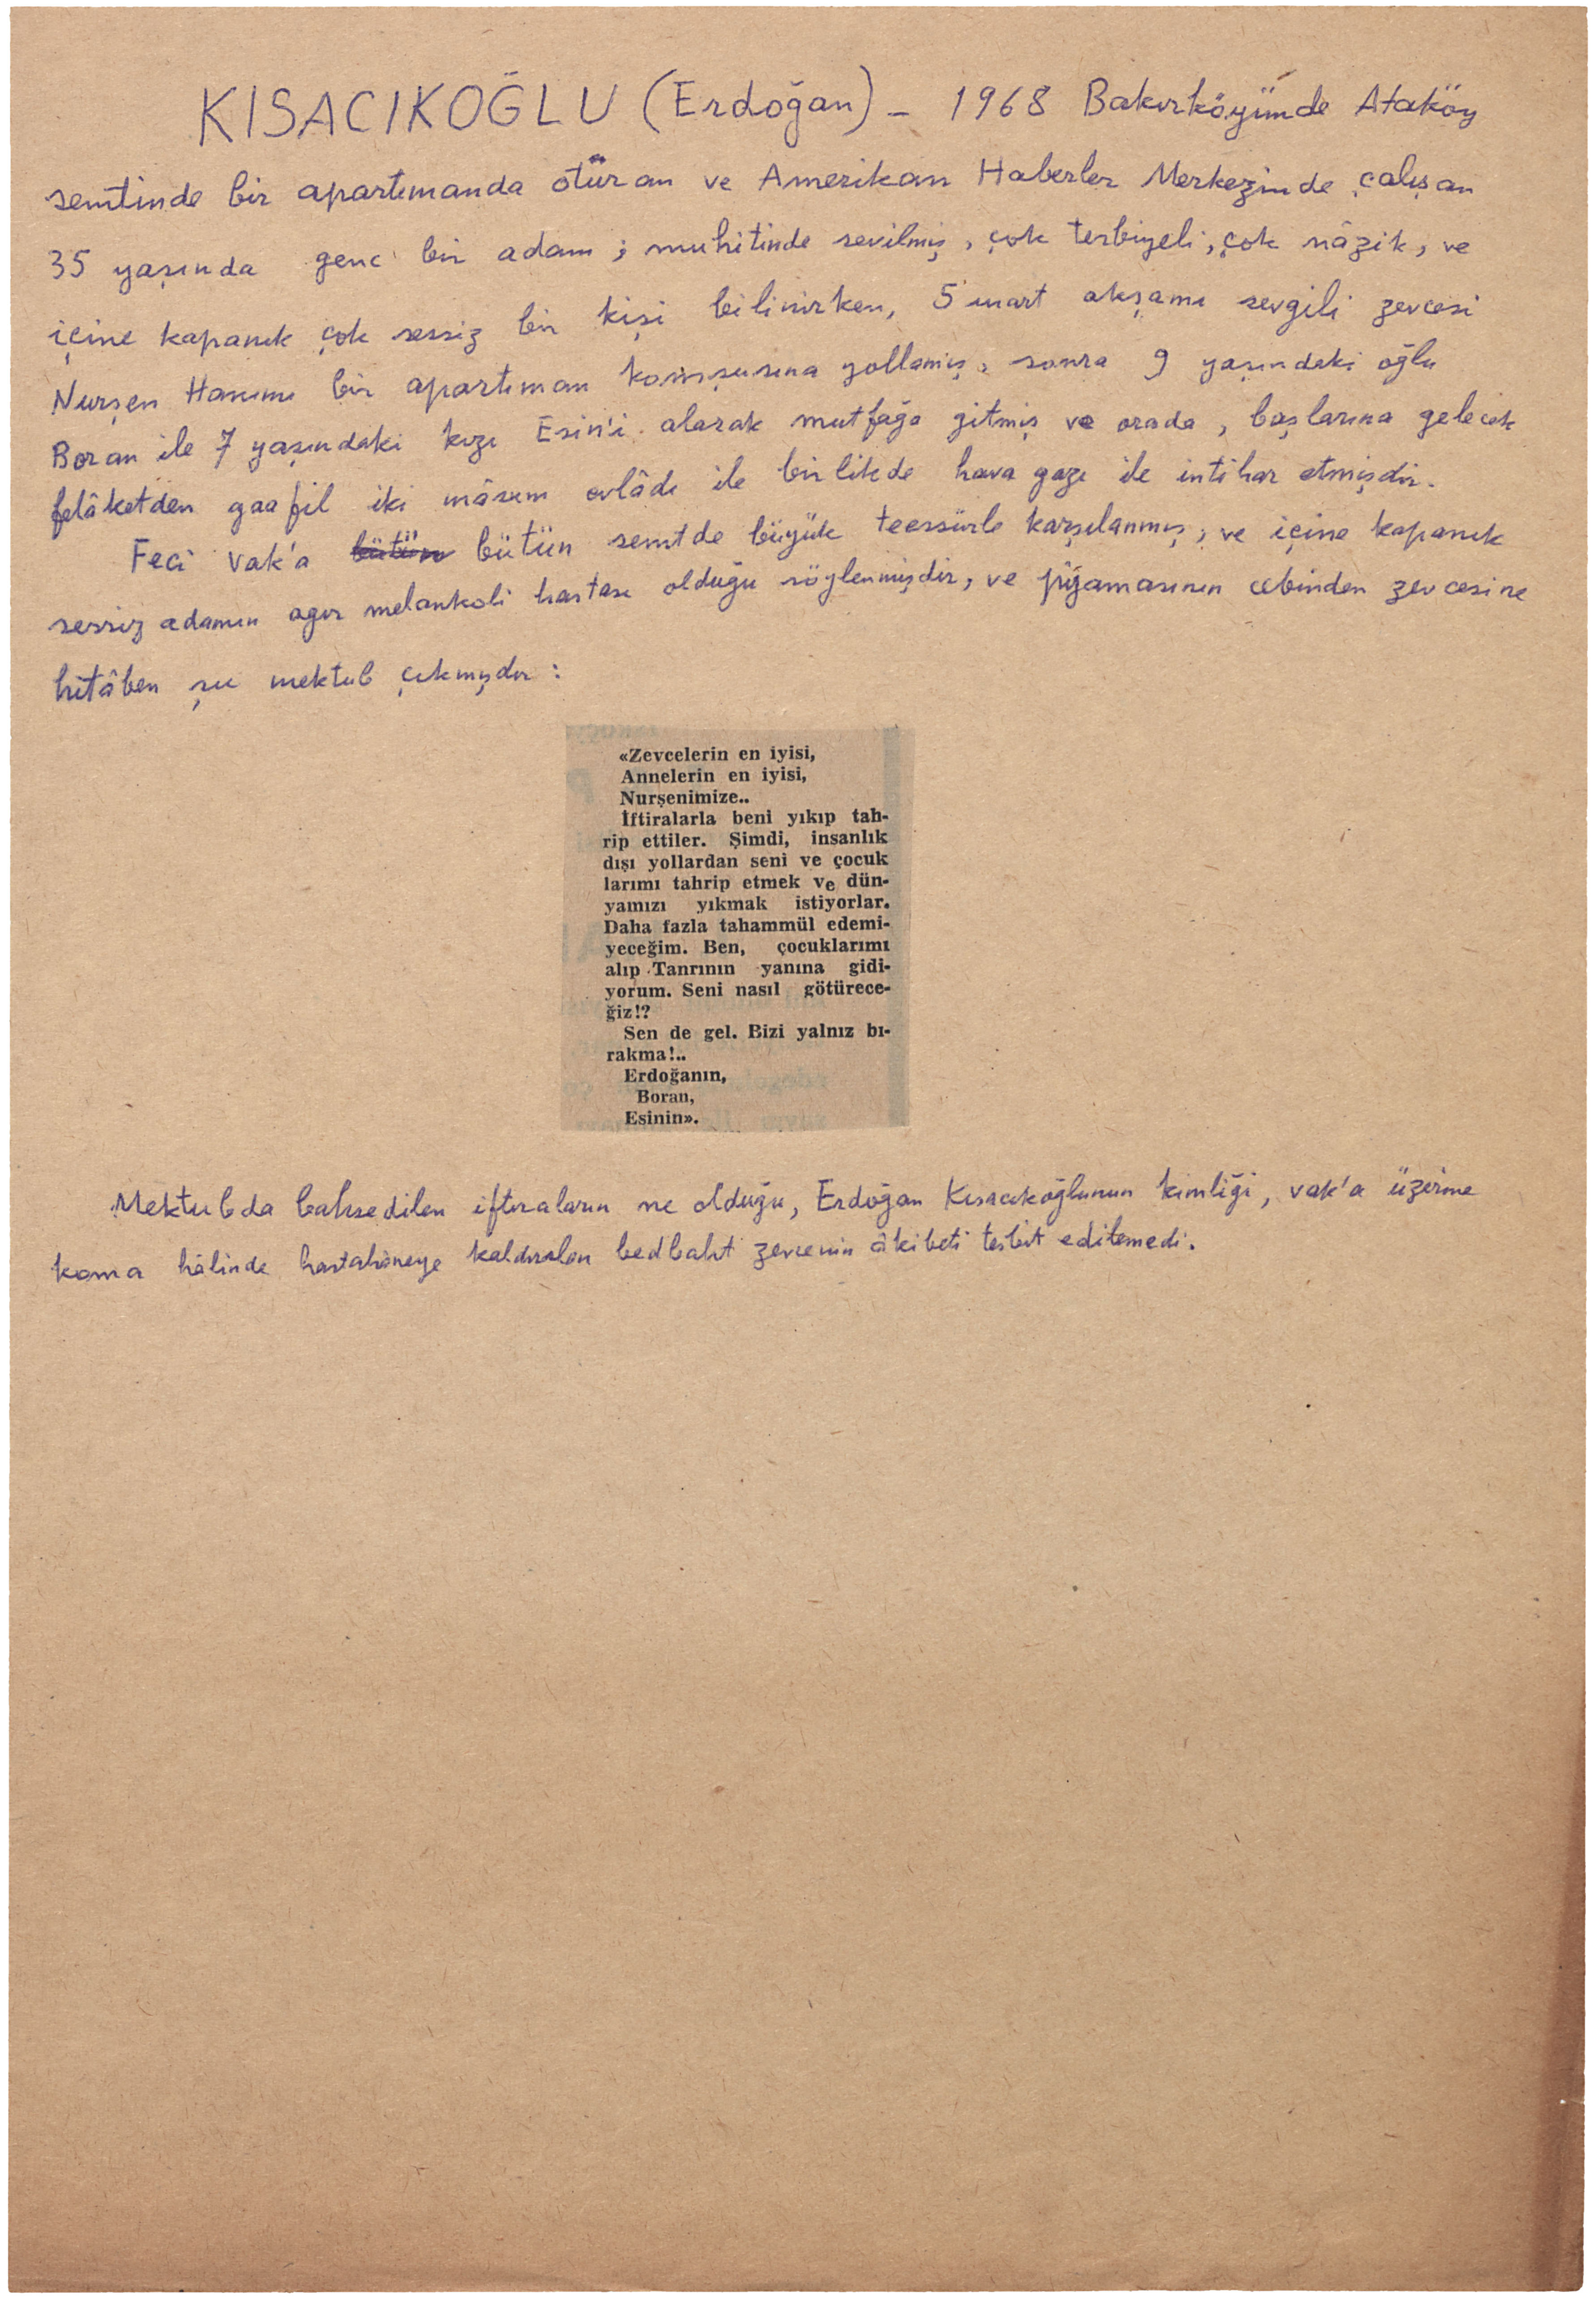 KISACIKOĞLU (Erdoğan) - 1968 Bakırköyünde Ataköy
semtinde bir apartımanda oturan ve Amerikan Haberler Merkezinde çalışan
35 yaşında genc bir adam ; muhitinde sevilmiş, çok terbiyeli, çok nâzik, ve
içine kapanık çok sessiz bir kişi bilinirken, 5 mart akşamı sevgili zevcesi
Nurşen Hanımı bir apartıman komşusuna yollamış, sonra 9 yaşındaki oğlu
Boran ile 7 yaşındaki kızı Esin'i alarak mutfağa gitmiş ve orada, başlarına gelecek
felâketden gaafil iki mâsum evlâdı ile birlikde hava gazı ile intihar etmişdir.
Feci vak'a bütün bütün semtde büyük teessürle karşılanmış, ve içine kapanık
sessiz adamın ağır melankoli hastası olduğu söylenmişdir, ve pijamasının cebinden zevcesine
hitâben şu mektub çıkmışdır :
«Zevcelerin en iyisi,
Annelerin en iyisi,
Nurşenimize..
İftiralarla beni yıkıp tah-
rip ettiler. Şimdi, insanlık
dışı yollardan seni ve çocuk
larımı tahrip etmek ve dün-
yamızı yıkmak istiyorlar.
Daha fazla tahammül edemi-
yeceğim. Ben, çocuklarımı
alıp Tanrının yanına gidi-
yorum. Seni nasıl götürece-
ğiz!?
Sen de gel. Bizi yalnız bı-
rakma!..
Erdoğanın,
Boran,
Esinin».
Mektubda bahsedilen iftiraların ne olduğu, Erdoğan Kısacıkoğlunun kimliği, vak'a üzerine
koma hâlinde hastahâneye kaldırılan bedbaht zevcenin âkibeti tesbit edilemedi.